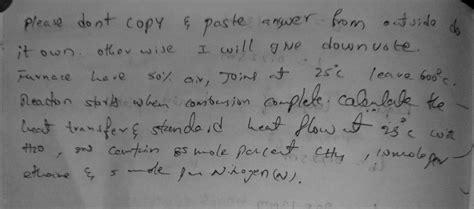 please dont copy & paste answer from outside do
it own. other wise I will give downvote.
Furnace have 50% air, Joins at 25°c leave 600°c.
Reaction starts when combusion complete. calculate the
heat transfer & standard heat flow at 25°c with
H2O, and contain 85 mole percent CH4, 10 mole per
ethane & 5 mole per Nitrogen (N).